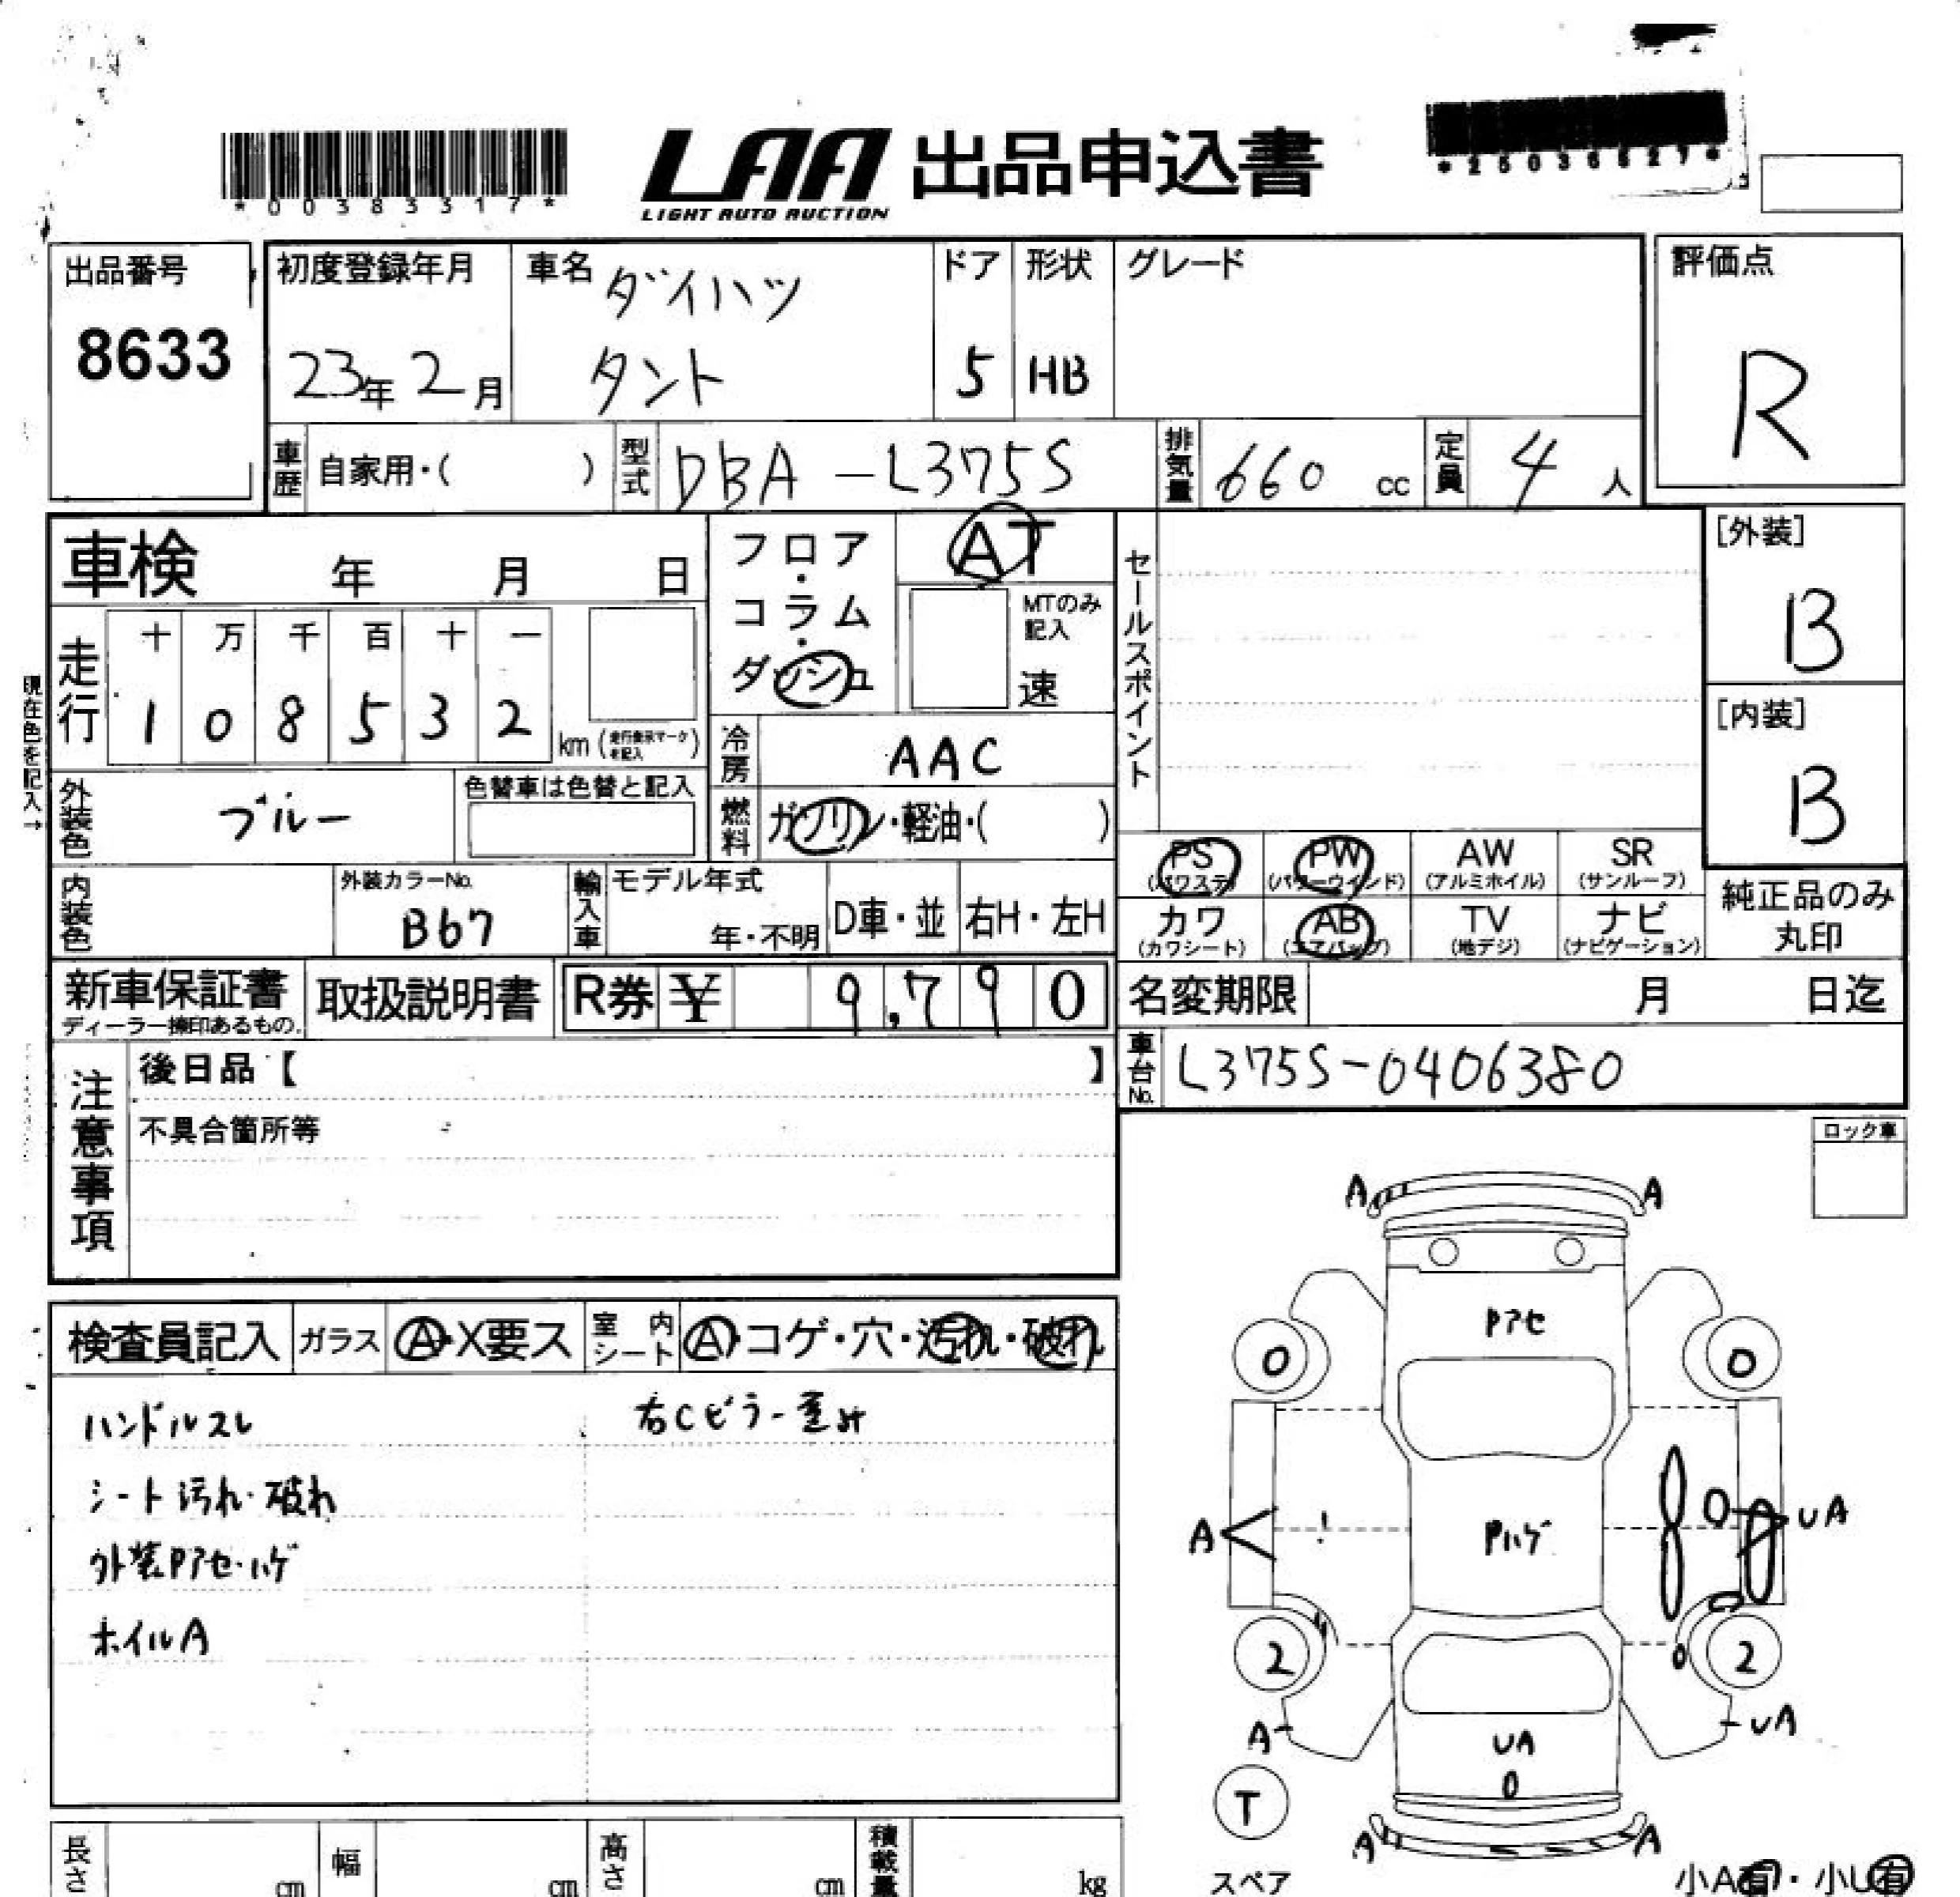 *00383317*
LAA
LIGHT AUTO AUCTION
出品申込書
*25036527*
出品番号
8633
初度登録年月
23年 2月
車名
ダイハツ
タント
ドア
5
形状
HB
グレード
評価点
R
車歴
自家用・( )
型式
DBA-L375S
排気量
660 cc
定員
4 人
車検 年 月 日
フロア・コラム・ダッシュ
AT
MTのみ記入
速
セールスポイント
[外装]
B
[内装]
B
現在色を記入→
走行
十 万 千 百 十 一
1 0 8 5 3 2
km (走行表示マークを記入)
冷房
AAC
外装色
ブルー
色替車は色替と記入
燃料
ガソリン・軽油・( )
PS (パワステ)
PW (パワーウインド)
AW (アルミホイル)
SR (サンルーフ)
カワ (カワシート)
AB (エアバッグ)
TV (地デジ)
ナビ (ナビゲーション)
純正品のみ丸印
内装色
外装カラーNo.
B67
輸入車
モデル年式
年・不明
D車・並
右H・左H
新車保証書
ディーラー捺印あるもの.
取扱説明書
R券 ¥ 9,790
名変期限 月 日迄
車台No.
L375S-0406380
注意事項
後日品【 】
不具合箇所等
ロック車
検査員記入
ガラス
A・X要ス
室内シート
A・コゲ・穴・汚れ・破れ
ハンドルスレ
シート汚れ・破れ
外装Pアセ・ハゲ
ホイルA
A
A
Pアセ
0
0
A
Pハゲ
UA
2
2
A
UA
UA
T
スペア
A
A
小A有・小U有
長さ cm
幅 cm
高さ cm
積載量 kg